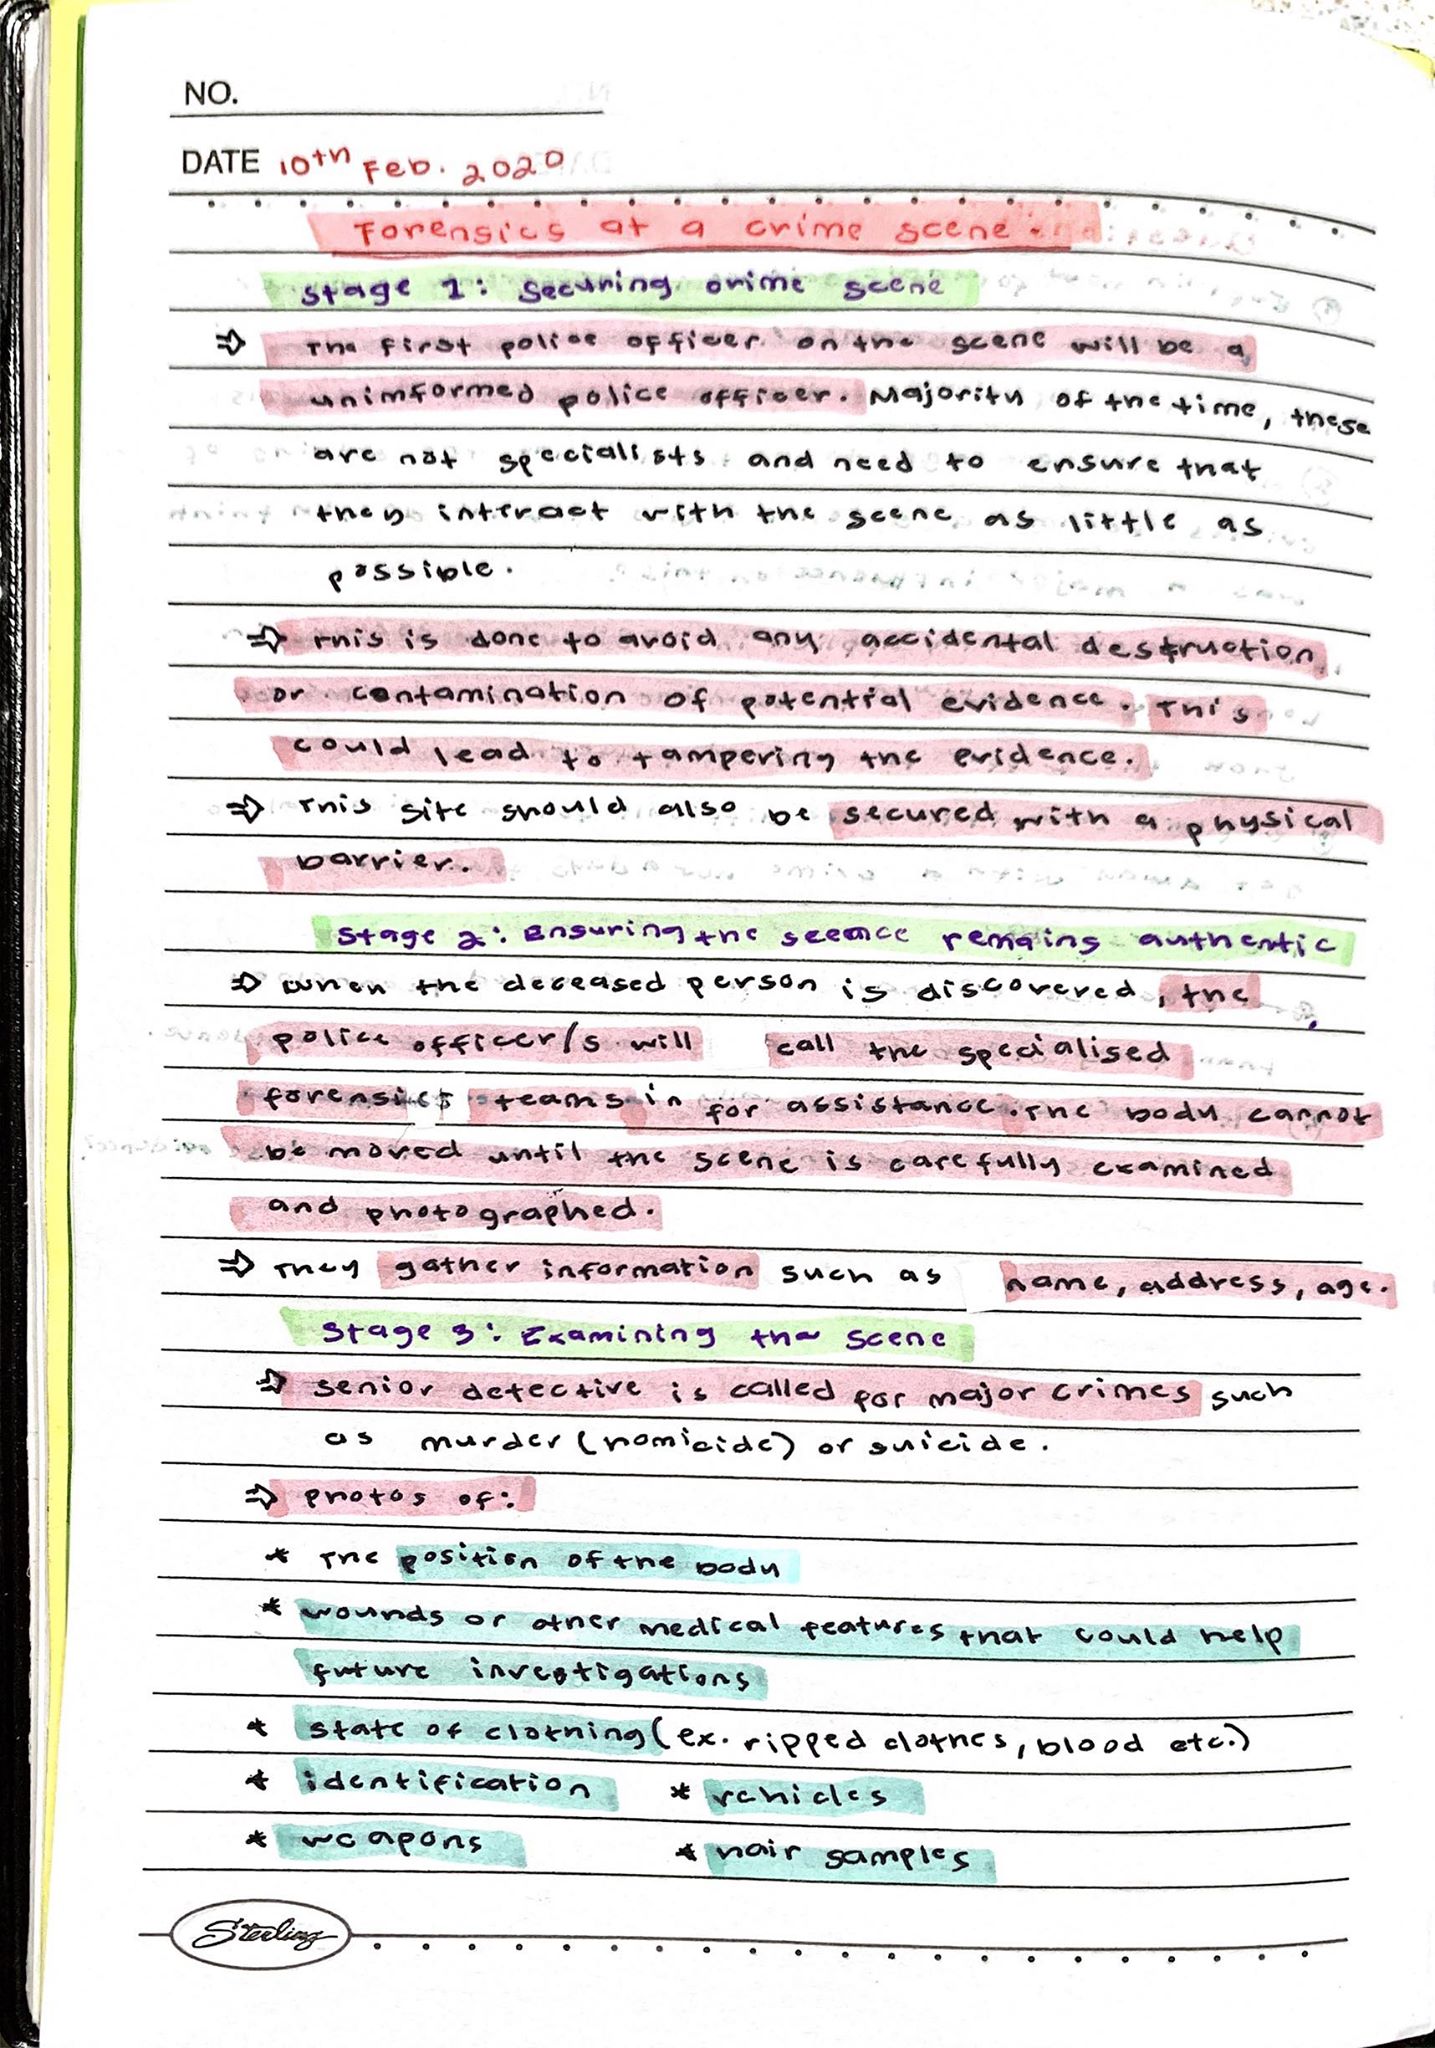 NO.
DATE 10th Feb. 2020
Forensics at a crime scene.
Stage 1: Securing crime scene
⇒ The first police officer on the scene will be a
unimformed police officer. Majority of the time, these
are not specialists and need to ensure that
they interact with the scene as little as
possible.
⇒ This is done to avoid any accidental destruction
or contamination of potential evidence. This
could lead to tampering the evidence.
⇒ This site should also be secured with a physical
barrier.
Stage 2: Ensuring the remains authentic
⇒ When the deceased person is discovered, the
police officer/s will call the specialised
forensics teams in for assistance. The body cannot
be moved until the scene is carefully examined
and photographed.
⇒ They gather information such as name, address, age.
Stage 3: Examining the scene
⇒ senior detective is called for major crimes such
as murder (homicide) or suicide.
⇒ photos of:
* The position of the body
* wounds or other medical features that could help
future investigations
* state of clothing (ex. ripped clothes, blood etc.)
* identification * vehicles
* weapons * hair samples
Sterling